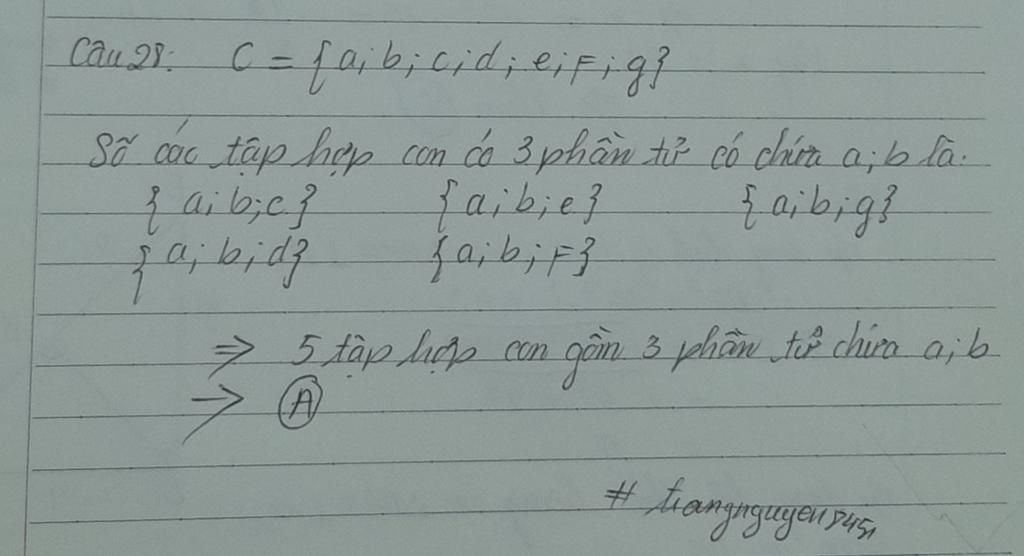 Câu 28: C = {a; b; c; d; e; F; g}
Số các tập hợp con có 3 phần tử có chứa a; b là.
{a; b; c} {a; b; e} {a; b; g}
{a; b; d} {a; b; F}
⇒ 5 tập hợp con gồm 3 phần tử chứa a; b
→ A
# trangnguyen